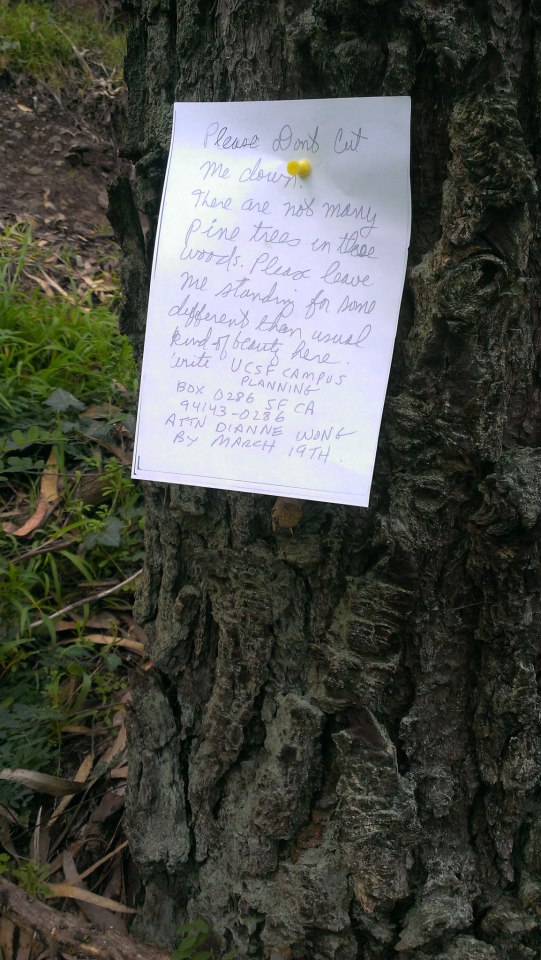 Please Dont Cut
me down.
There are not many
pine trees in these
woods. Please leave
me standing for some
different than usual
kind of beauty here.
write UCSF CAMPUS
PLANNING
BOX 0286 SF CA
94143-0286
ATTN DIANNE WONG
BY MARCH 19TH.